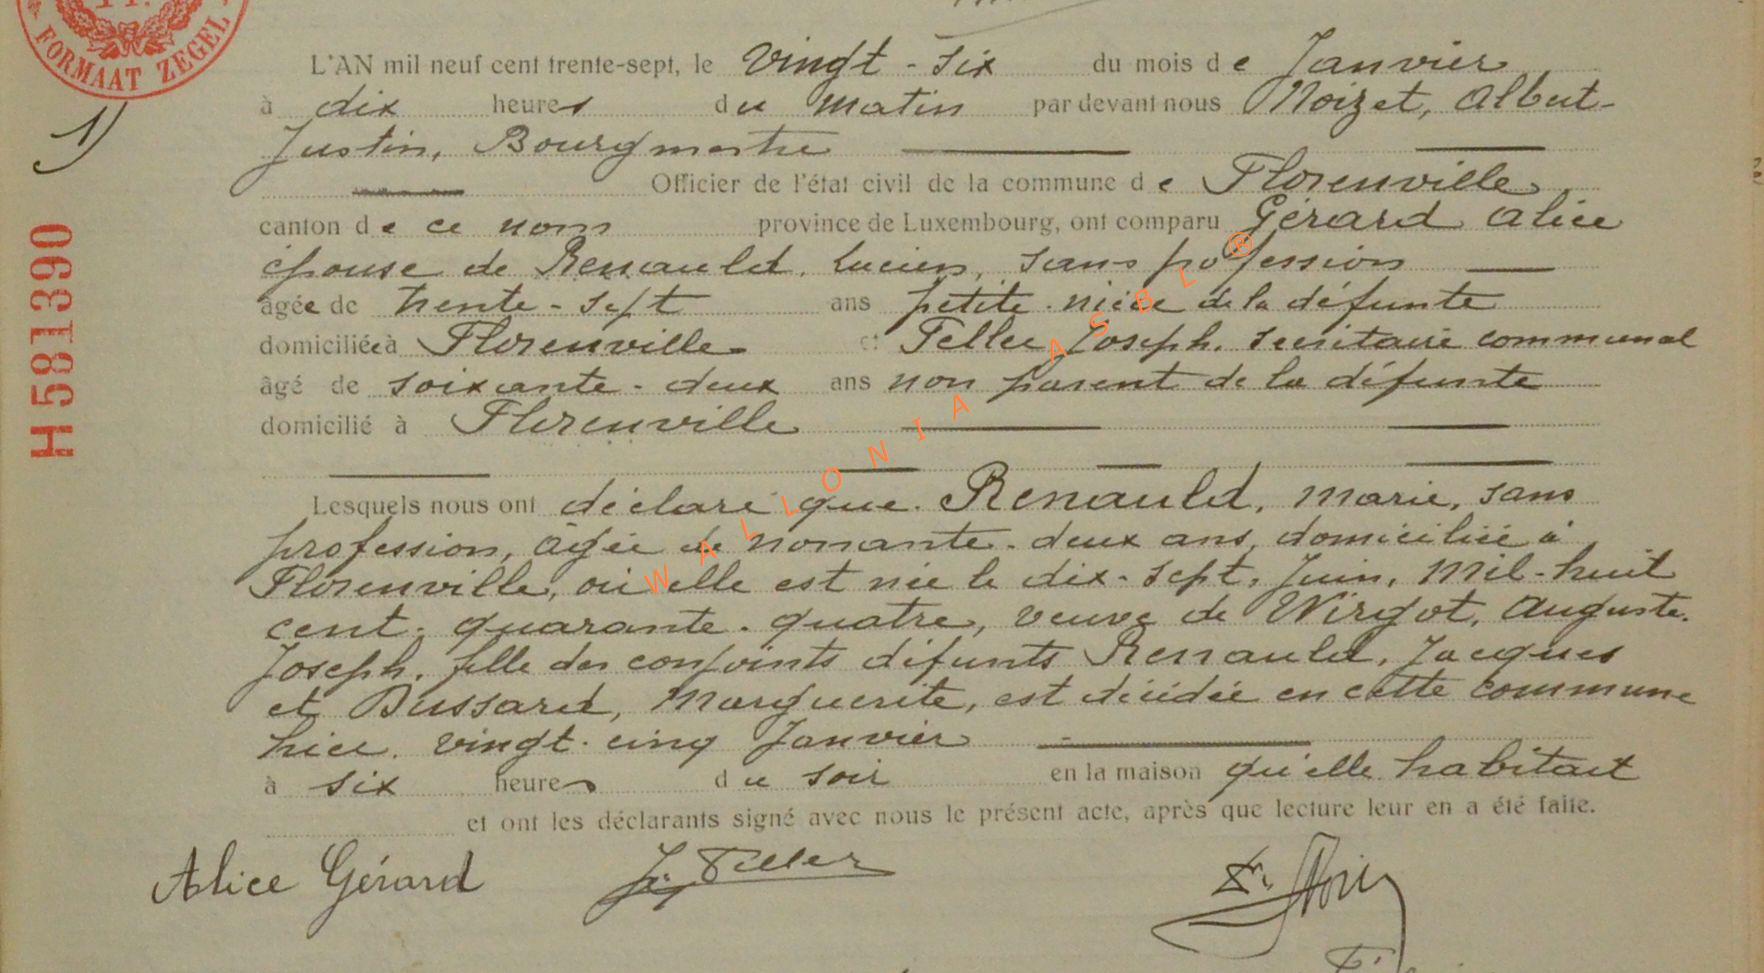 FORMAAT ZEGEL
L'AN mil neuf cent trente-sept, le vingt-six du mois de Janvier
à dix heures du matin par devant nous Noizet, Albert-
1)
Justin, Bourgmestre
Officier de l'état civil de la commune de Florenville,
canton de ce nom province de Luxembourg, ont comparu Gérard Alice
épouse de Renauld, Lucien, sans profession
âgée de trente-sept ans petite-nièce de la défunte
domiciliée à Florenville et Feller Joseph, secrétaire communal
âgé de soixante-deux ans non parent de la défunte
domicilié à Florenville
H581390
Lesquels nous ont déclaré que Renauld, Marie, sans
profession, âgée de nonante-deux ans, domiciliée à
Florenville, où elle est née le dix-sept, Juin, mil-huit
cent-quarante-quatre, veuve de Wirgot, Auguste-
Joseph, fille des conjoints défunts Renauld, Jacques
et Bussard, Marguerite, est décédée en cette commune
hier vingt-cinq Janvier
à six heures du soir en la maison qu'elle habitait
et ont les déclarants signé avec nous le présent acte, après que lecture leur en a été faite.
Alice Gérard J. Feller
WALLONIA ASBL ®